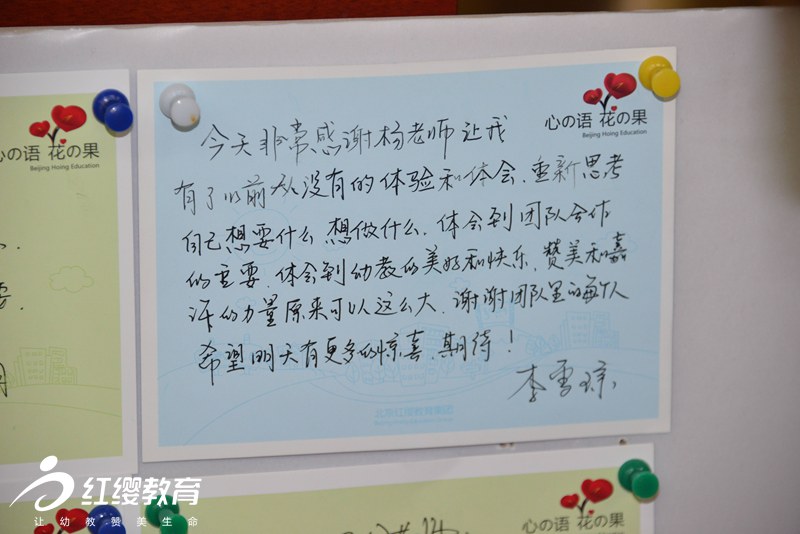 心の语 花の果
Beijing Hoing Education
心の语 花の果
Beijing Hoing Education
今天非常感谢杨老师让我
有了以前从没有的体验和体会.重新思考
自己想要什么.想做什么.体会到团队合作
的重要.体会到幼教的美好和快乐.赞美和嘉
许的力量原来可以这么大.谢谢团队里的每个人
希望明天有更多的惊喜.期待!
李雪琼
北京红缨教育集团
红缨教育
让幼教赞美生命
心の语 花の果